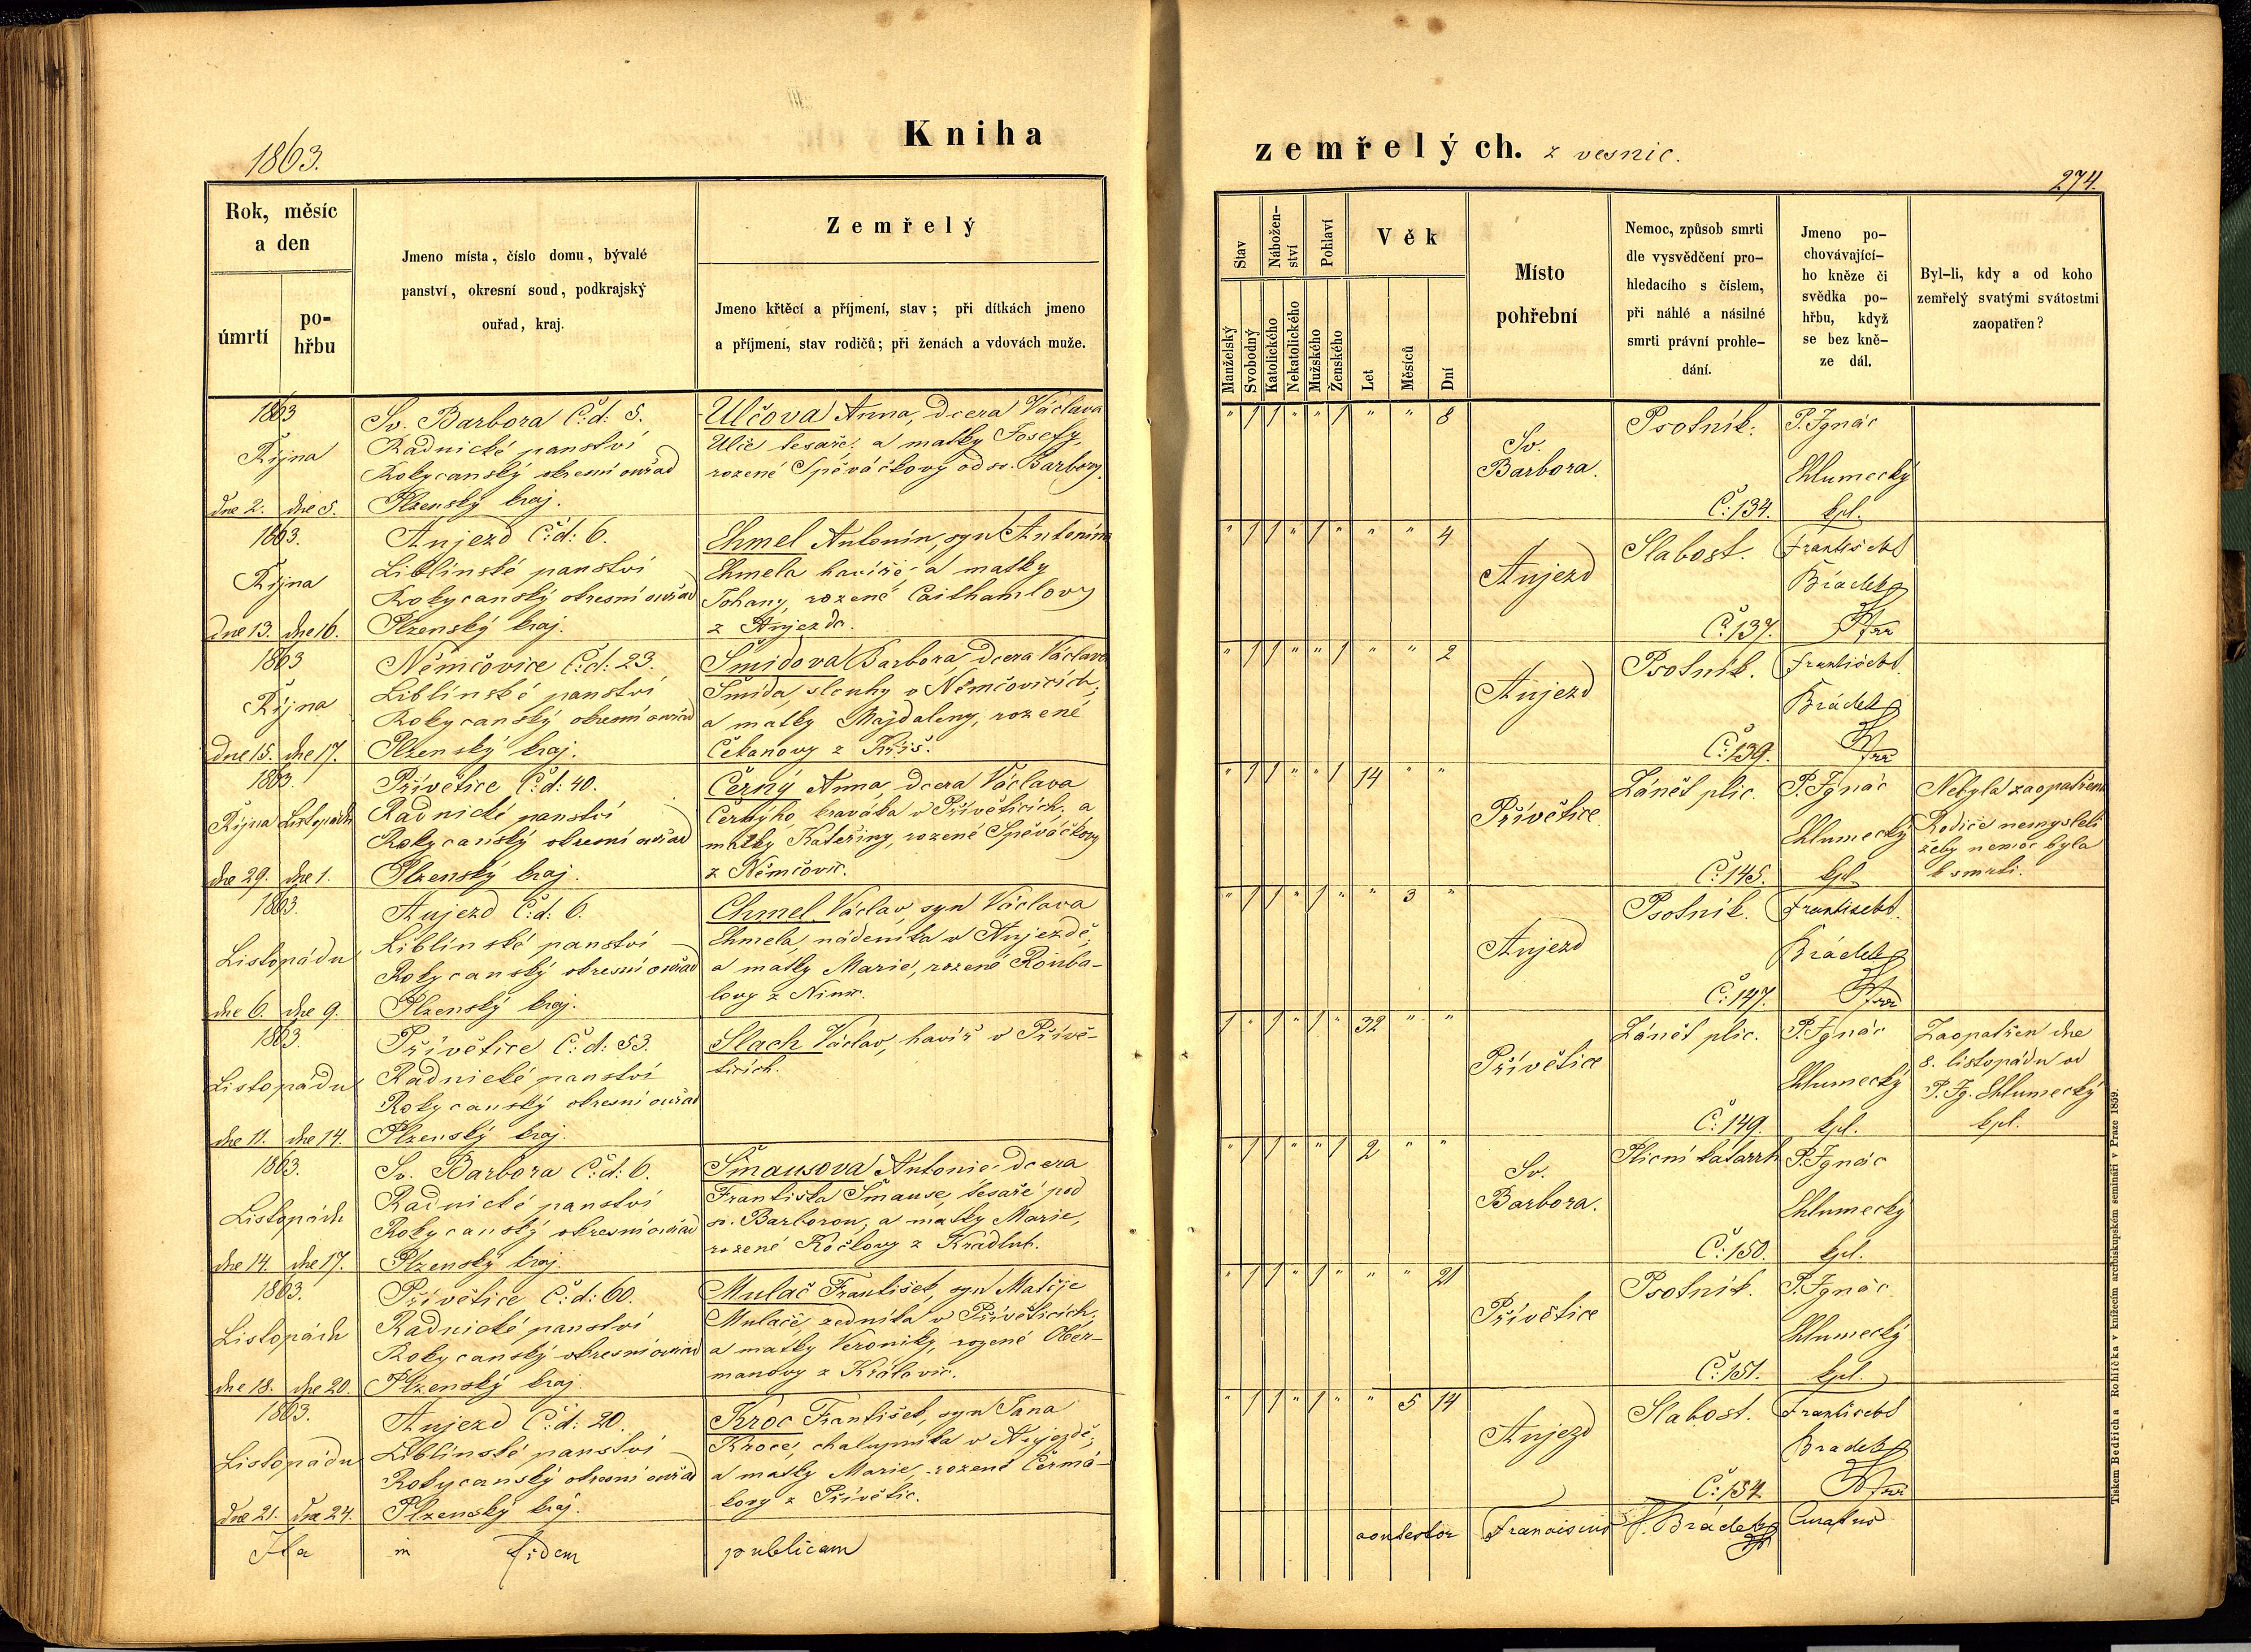 1863.
Kniha
zemřelých. z vesnic.
274.
Rok, měsíc
a den
úmrtí
po-
hřbu
Jmeno místa, číslo domu, bývalé
panství, okresní soud, podkrajský
ouřad, kraj.
Zemřelý
Jmeno křtěcí a příjmení, stav; při dítkách jmeno
a příjmení, stav rodičů; při ženách a vdovách muže.
Stav
Nábožen-
ství
Pohlaví
Věk
Manželský
Svobodný
Katolického
Nekatolického
Mužského
Ženského
Let
Měsíců
Dní
Místo
pohřební
Nemoc, způsob smrti
dle vysvědčení pro-
hledacího s číslem,
při náhlé a násilné
smrti právní prohle-
dání.
Jmeno po-
chovávající-
ho kněze či
svědka po-
hřbu, když
se bez kně-
ze dál.
Byl-li, kdy a od koho
zemřelý svatými svátostmi
zaopatřen?
1863
Října
dne 2. dne 5.
Sv. Barbora Č: d: 5.
Radnické panství
Rokycanský okresní ouřad
Plzenský kraj.
Ulčova Anna, dcera Václava
Ulče tesaře, a matky Josefy,
rozené Spěváčkovy od sv. Barbory.
" 1 1 " " 1 " " 8
Sv.
Barbora.
Psotník.
Č: 134.
P. Ignác
Chlumecký
kpl.
1863.
Října
dne 13. dne 16.
Aujezd Č: d: 6.
Liblínské panství
Rokycanský okresní ouřad
Plzenský kraj.
Chmel Antonín, syn Antonína
Chmela havíře, a matky
Johany, rozené Caithamlovy
z Aujezda.
" 1 1 " 1 " " " 4
Aujezd
Slabost.
Č: 137.
František
Brádek
Ffrr
1863
Října
dne 15. dne 17.
Němčovice Č: d: 23.
Liblínské panství
Rokycanský okresní ouřad
Plzenský kraj.
Šmidova Barbora, dcera Václava
Šmida, sluhy v Němčovicích,
a matky Majdaleny, rozené
Čekanovy z Kříš.
" 1 1 " " 1 " " 2
Aujezd
Psotník.
Č: 139.
František
Brádek
Ffrr
1863.
Října Listopádu
dne 29. dne 1.
Přívětice Č: d: 40.
Radnické panství
Rokycanský okresní ouřad
Plzenský kraj.
Černý Anna, dcera Václava
Černýho, kraváka v Příveticích, a
matky Kateřiny, rozené Spěváčkovy
z Němčovic.
" 1 1 " " 1 14 " "
Přívětice
Zánět plic.
Č: 145.
P. Ignác
Chlumecký
kpl.
Nebyla zaopatřena
Rodiče nemysleli
žeby nemoc byla
k smrti.
1863.
Listopádu
dne 6. dne 9.
Aujezd Č: d: 6.
Liblínské panství
Rokycanský okresní ouřad
Plzenský kraj.
Chmel Václav, syn Václava
Chmela, nádeníka v Aujezdě,
a matky Marie, rozené Rouba-
lovy z
" 1 1 " 1 " " 3 "
Aujezd
Psotník.
Č: 147.
František
Brádek
Ffrr
1863.
Listopádu
dne 11. dne 14.
Přívětice Č: d: 53.
Radnické panství
Rokycanský okresní ouřad
Plzenský kraj.
Slach Václav, havíř v Přívě-
ticích.
1 " 1 " 1 " 32 " "
Přívětice
Zánět plic.
Č: 149.
P. Ignác
Chlumecký
kpl.
Zaopatřen dne
8. listopádu od
P. Ig. Chlumecký
kpl.
1863.
Listopádu
dne 14. dne 17.
Sv. Barbora Č: d: 6.
Radnické panství
Rokycanský okresní ouřad
Plzenský kraj.
Šmausova Antonie, dcera
Františka Šmause, tesaře pod
sv. Barborou, a matky Marie,
rozené Kočkovy z Kladrub.
" 1 1 " " 1 2 " "
Sv.
Barbora.
Plicní katarrh
Č: 150.
P. Ignác
Chlumecký
kpl.
1863.
Listopádu
dne 18. dne 20.
Přívětice Č: d: 60.
Radnické panství
Rokycanský okresní ouřad
Plzenský kraj.
Mulač František, syn Matěje
Mulače, zedníka v Příveticích,
a matky Veroniky, rozené Ober-
manovy z Královic.
" 1 1 " 1 " " " 21
Přívětice
Psotník.
Č: 151.
P. Ignác
Chlumecký
kpl.
1863.
Listopádu
dne 21. dne 24.
Aujezd Č: d: 20.
Liblínské panství
Rokycanský okresní ouřad
Plzenský kraj.
Kroc František, syn Jana
Kroce, chalupníka v Aujezdě,
a matky Marie, rozené Čermá-
kovy z Přívětic.
" 1 1 " 1 " " 5 14
Aujezd
Slabost.
Č: 154.
František
Bradek
Ffrr
Ita in fidem publicam
contestor Franciscus F. Brádek Curatus
Tiskem Bedřicha Rohlíčka v knížecím arcibiskupském semináři v Praze 1859.